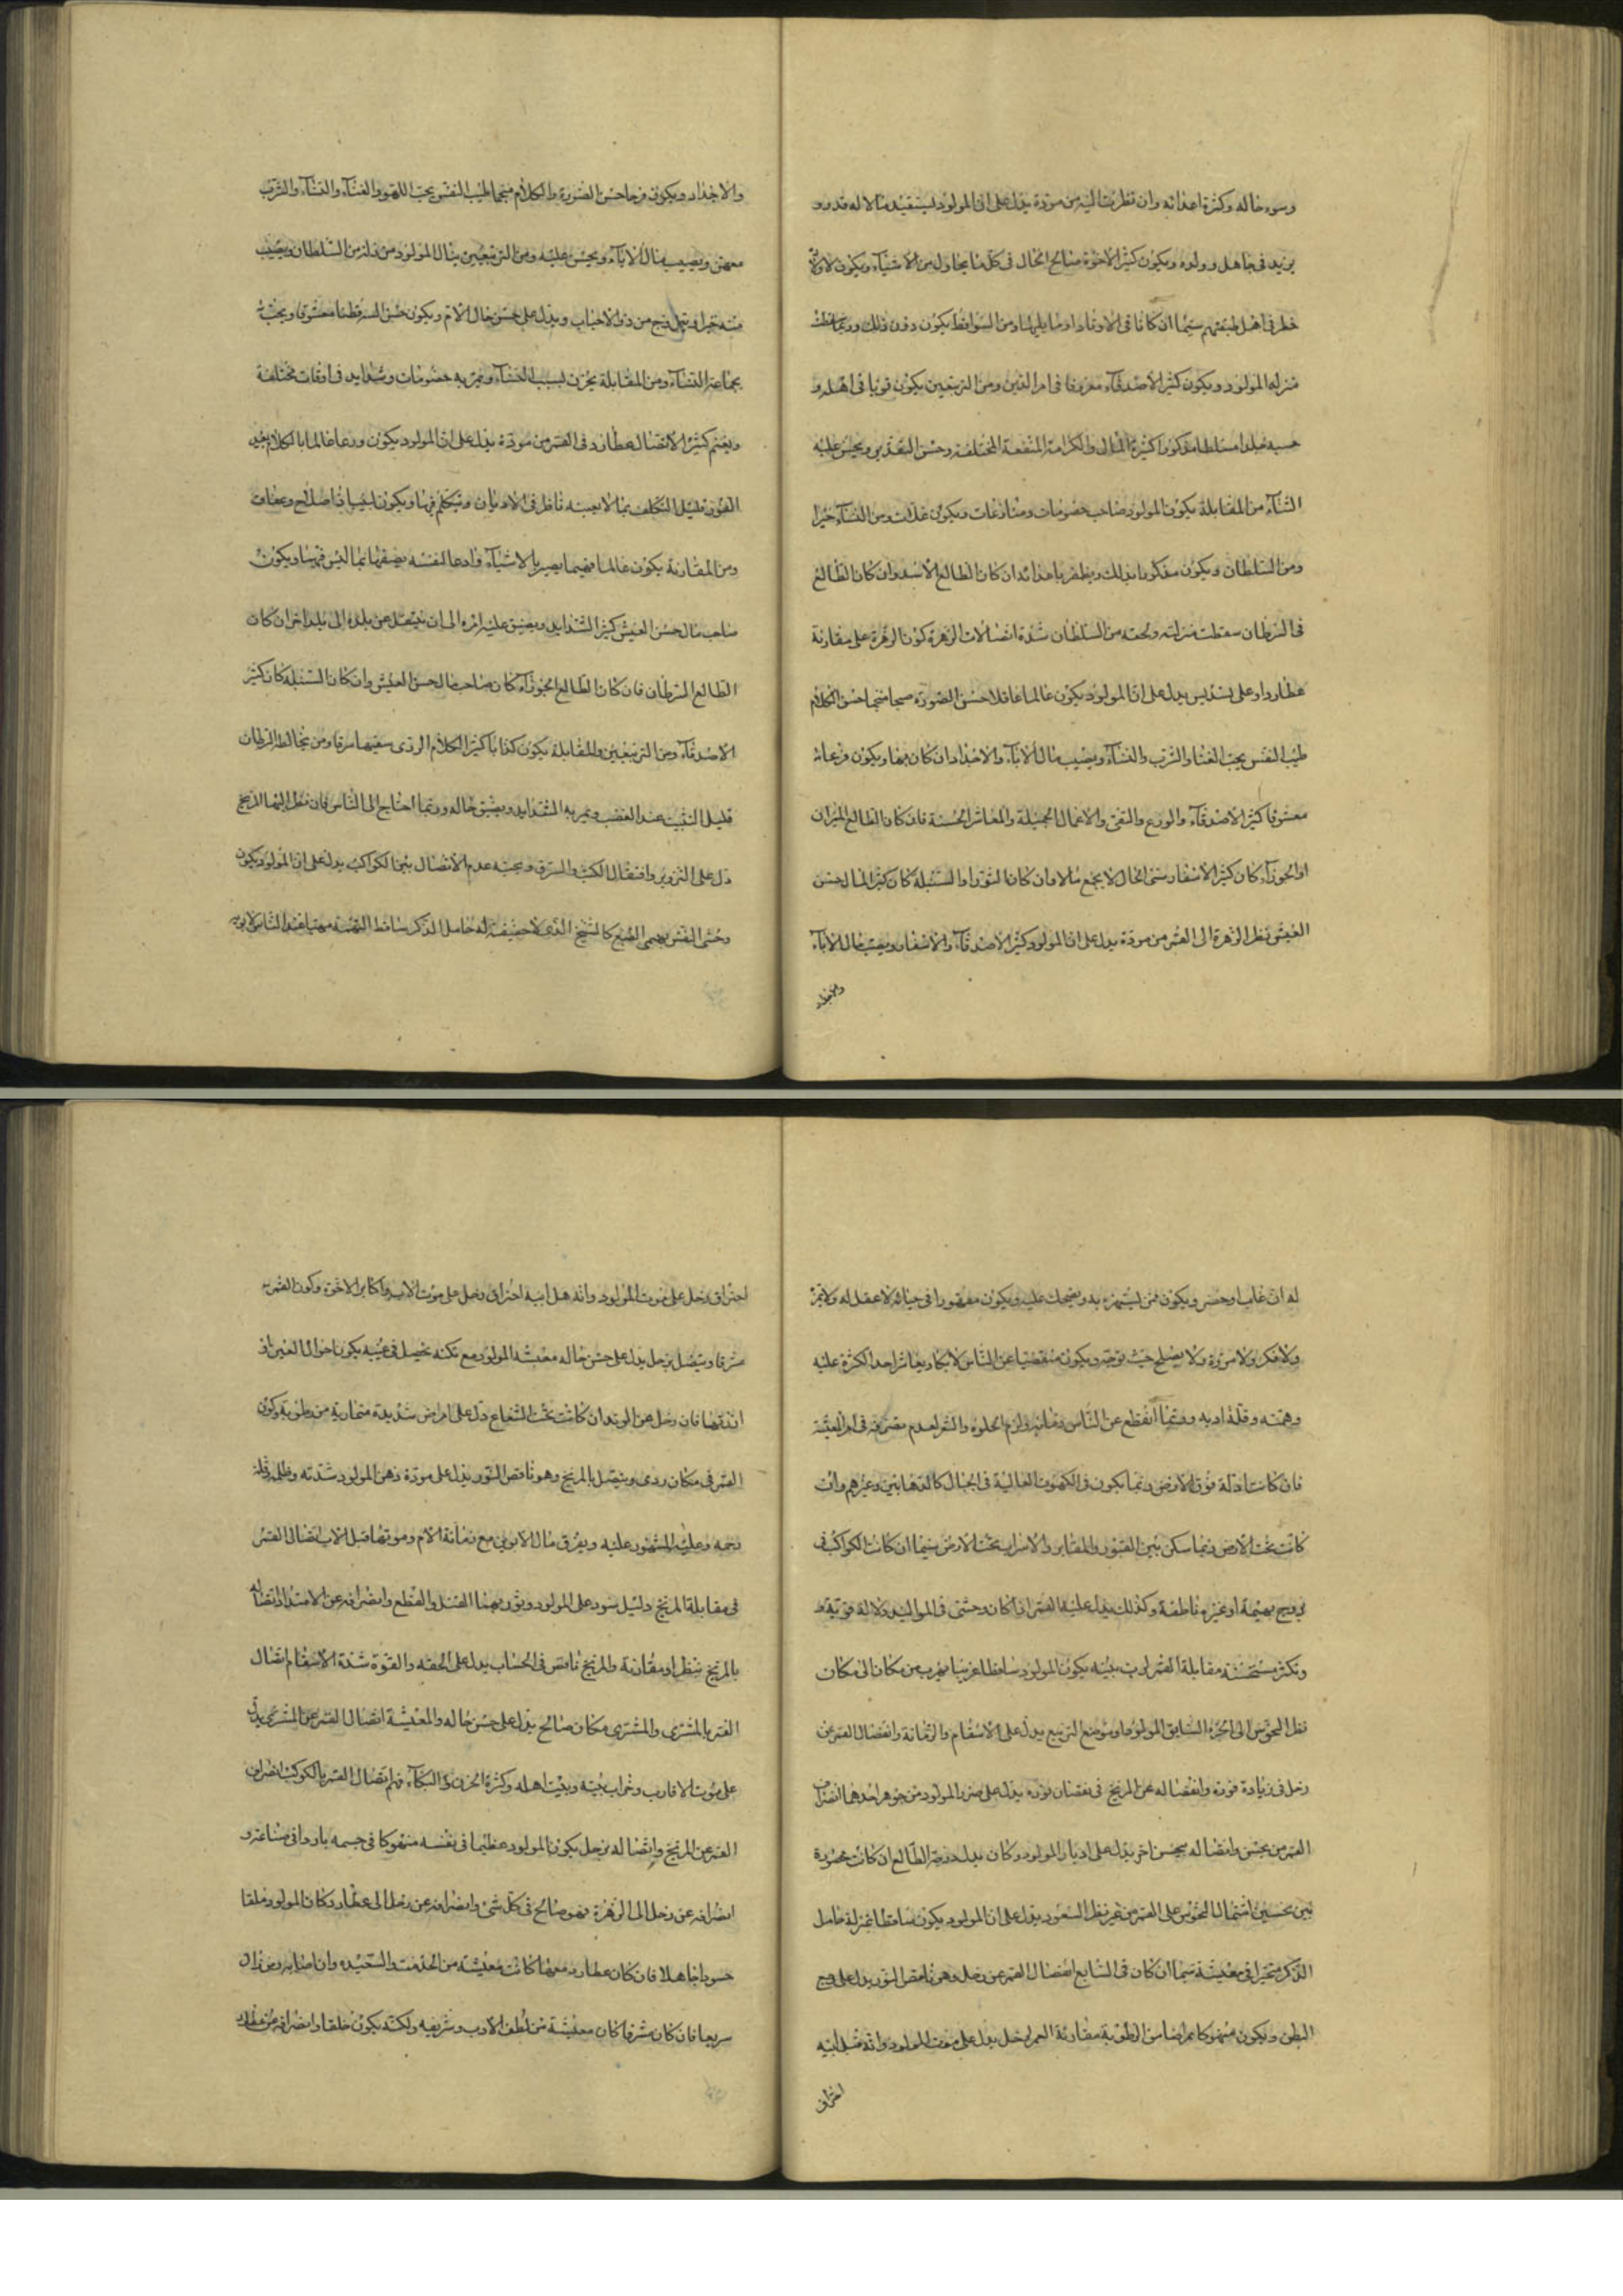 وسوء حاله وكثرة اعدائه وان نظرت اليه من مودة يدل على ان المولود يستفيد مالا له قدر و
يزيد في جاهل وولده ويكون كثير الاخوة صالح الحال في كل ما يحاول من الاشياء ويكون لاولاده
خطر في اهل طبقتهم سيما ان كانا في الاوتاد او ما يليها ومن السواقط يكون دون ذلك وربما
منزله المولود ويكون كثير الاصدقاء معروفا في امر الدين ومن التربيعين يكون قويا في اهله و
حسبه مسلطا مذكورا كثيرة المال والكرامة المنفعة المختلفة وحسن التقدير ويحسن عليه
الثناء من المقابلة يكون المولود صاحب خصومات ومنازعات ويكون ومن النساء خيرا
ومن السلطان ويكون مذكورا بذلك ويظفر باعدائه ان كان الطالع الاسد وان كان الطالع
في السرطان سقطت منزلته ولحقه من السلطان شدة اتصالات الزهرة كون الزهرة على مقارنة
عطارد او على تسديس يدل على ان المولود يكون عالما عاقلا حسن الصورة منجما حسن الكلام
طيب النفس يحب الغنا والشرب والنساء ويصيب مال الآباء والاجداد ان كان بها ويكون
معشوقا كثير الاصدقاء والورع والتقى والاعمال الجميلة والمعاش الحسنة فان كان الطالع الميزان
او الجوزاء كان كثير الاسفار سيئ الحال لا يجمع مالا وان كان الثور او السنبلة كان كثير المال حسن
العيش نظر الزهرة الى القمر من مودة يدل على ان المولود كثير الاصدقاء والاسفار ويصيب مال الآباء
والاجداد
والاجداد ويكون فرحا حسن الصورة والكلام منجما طيب النفس يحب اللهو والغناء والنساء والشرب
معهن ويصيب مال الآباء ويحسن عليه ومن التربيعين ينال المولود من السلطان ويصيب
منه خيرا من ذو الاحباب ويدل على حسن حال الام ويكون حسن السر فطنا معشوقا ويحب
بجماعة النساء ومن المقابلة يحزن بسبب النساء ويمر به خصومات وشدايد في اوقات مختلفة
ويغتم كثير الاتصال عطارد في القمر من مودة يدل على ان المولود يكون ورعا عالما بالكلام بعيد
الغور قليل التكلف بما لا يعنيه ناظر في الاديان ويتكلم فيها ويكون لبيبا ذا صلاح وعفاف
ومن المقارنة يكون عالما فهيما بصيرا بالاشياء وادعا لنفسه بما ليس فيها ويكون
صاحب مال حسن العيش كثير الشدايد ويضيق عليه امره الى ان ينتقل عن بلده الى بلد اخر ان كان
الطالع السرطان فان كان الطالع الجوزاء كان صاحب مال حسن العيش وان كان السنبلة كان كثير
الاصدقاء ومن التربيعين والمقابلة يكون كذابا كثير الكلام الردى سفيها سرقا ومن يخالطه السلطان
قليل التثبت عند الغضب ويمر به الشدايد ويضيق حاله وربما احتاج الى الناس فان نظر اليهما المريخ
دل على التزوير وافتعال الكتب والسرق ويحبسه عدم الاتصال بين الكواكب يدل على ان المولود يكون
وحشي النفس بهيمي الطبع كالشيخ الذي لا حقيقة له خامل الذكر ساقط الهمة عند الناس لا يوبه
له ان غاب او حضر ويكون ممن يستهزء به ويضحك عليه ويكون مقهورا في حياته لا عقل له ولا تميز
ولا فكر ولا مروة ولا يصلح حيث توجه ويكون منقصيا عن الناس لا يكاد يعاشر احدا لكثرة عليه
وهمته وقلة ادبه وربما انقطع عن الناس ولزم الخلوة والتفرد لعدم تصرفه في امر المعيشة
فان كانت ادلة فوق الارض ربما يكون في الكهوف العالية في الجبال كالرهابين وغيرهم وان
كانت تحت الارض ربما سكن بين القبور والمقابر والاسراب تحت الارض سيما ان كانت الكواكب في
برج بهيمة او غيره ناطقة وكذلك يدل عليه القمر اذا كان وحشي في المواليد دلالة قوية
وتكثر مقابلة القمر لرب بيته يكون المولود ساقطا غريبا يهرب من مكان الى مكان
نظر النحوس الى الجزء السابق المولود وموضع التربيع يدل على الاسقام والزمانة وانفصال القمر عن
زحل في زيادة نوره وانفصاله عن المريخ في نقصان نوره يدل على ضرر المولود من جوهر احدهما انصراف
القمر من نحس واتصاله بنحس اخر يدل على ادبار المولود وكان يدل درجة الطالع ان كانت محصورة
بين نحسين اشتمال النحوس على القمر من غير نظر السعود يدل على ان المولود يكون ساقط المنزلة خامل
الذكر متحيرا في معيشته سيما ان كان في السابع انفصال القمر عن زحل وهو ناقص النور يدل على وجع
البطن ويكون منهوكا مراضا من الرطوبة مقارنة القمر لزحل يدل على موت المولود وانه قبل ابيه
احتراق
احتراق زحل على موت المولود وانه قبل ابيه احتراق زحل على موت الاب واكابر الاخوة وكون القمر
مشرقا ويتصل بزحل يدل على حسن حاله معيشة المولود مع نكبة تحصل في عينيه يكون احوال العين
انذتها فان زحل عن الوتد ان كانت تحت الشعاع دل على امراض شديدة متحاربة من رطوبة وكون
القمر في مكان ردى ويتصل بالمريخ وهو ناقص النور يدل على مودة ذهن المولود شدته وظلمه وقلة
رحمه وغلب الشهود عليه ويفرق مال الابوين مع زمانة الام وموتها قبل الاب اتصال القمر
في مقابلة المريخ دليل سوء على المولود ويورثهما القتل والقطع وانصرافه عن الامتداد اتصاله
بالمريخ بنظر او مقارنة والمريخ ناقص في الحساب يدل على الحقه والقوة شدة الاسقام اتصال
القمر بالمشترى والمشترى مكان صالح يدل على حسن حاله والمعيشة اتصال القمر عن المشترى يدل
على موت الاقارب وخراب بيته وبيت اهله وكثرة الحزن والبكاء عدم اتصال القمر بالكوكب انصراف
القمر عن المريخ واتصاله بزحل يكون المولود عظيما في نفسه منهوكا في جسمه باردا في صناعته و
انصرافه عن زحل الى الزهرة فهو صالح في كل شئ وانصرافه عن زحل الى عطارد كان المولود قلقا
حسودا جاهلا فان كان عطارد مغربا كانت معيشته من الخدمة والسخيده وان اصابه رزق زال
سريعا فان كان مشرقا كان معيشته من لطف الادب وشريفه ولكنه يكون خلقا وانصرافه عن عطارد